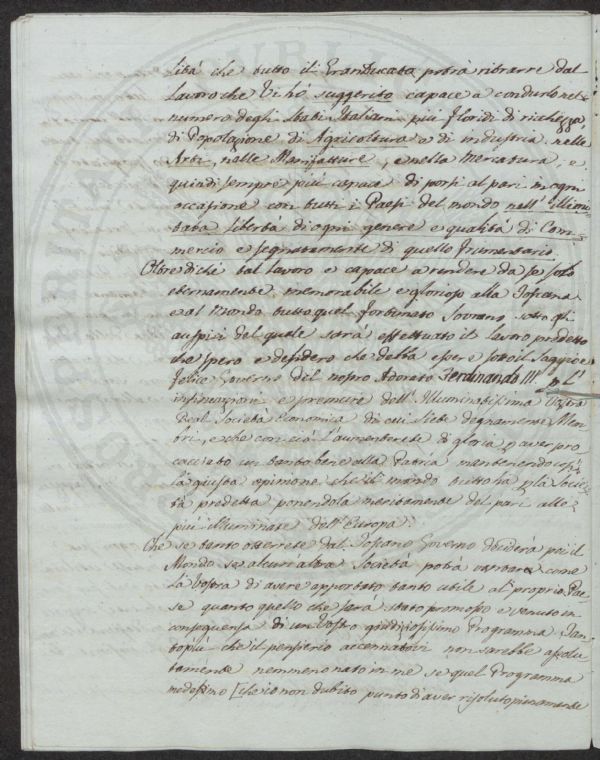 lità che tutto il Granducato potrà ritrarre dal
Lavoro che Vi hò suggerito capace a condurlo nel
numero degli Stati Italiani più floridi di richezza,
di Popolazione di Agricoltura e di industria nelle
Arti, nelle Manifatture, e nella Mercatura, e
quindi sempre più capace di porsi al pari in ogni
occasione con tutti i Paesi del mondo nell' illimi=
tata libertà di ogni genere e qualità di Com=
mercio e segnatamente di quello frumentario.
Oltre di che tal lavoro e capace a rendere da se solo
eternamente memorabile e glorioso alla Toscana
e al Mondo tutto quel fortunato Sovrano sotto gli
auspici del quale sarà effettuato il Lavoro predetto
che spero e desidero che debba essere sotto il Saggio e
felice Governo del nostro Adorato Ferdinando III° p l'
insinuazioni e premure dell' Illuminatissima Vostra
Real Società Economica di cui siete degnamente Mem
bri, e che con ciò l'aumenterete di gloria p aver pro
cacciato un tanto bene alla Patria mantenendo così
la giusta opinione che il mondo tutto ha p la Socie
tà predetta ponendola meritamente del pari alle
più illuminate dell' Europa.
Che se tanto otterrete dal Toscano Governo deciderà poi il
Mondo se alcun altra Società potrà vantare come
la Vostra di avere apportato tanto utile al proprio Pae
se quanto quello che sarà stato promosso e venuto in
conseguenza di un Vostro giudiziosissimo Programma Tan
topiù che il pensiero accennatovi non sarebbe assolu
tamente nemmeno nato in me se quel Programma
medesimo [che io non dubito punto di aver risoluto pienamente